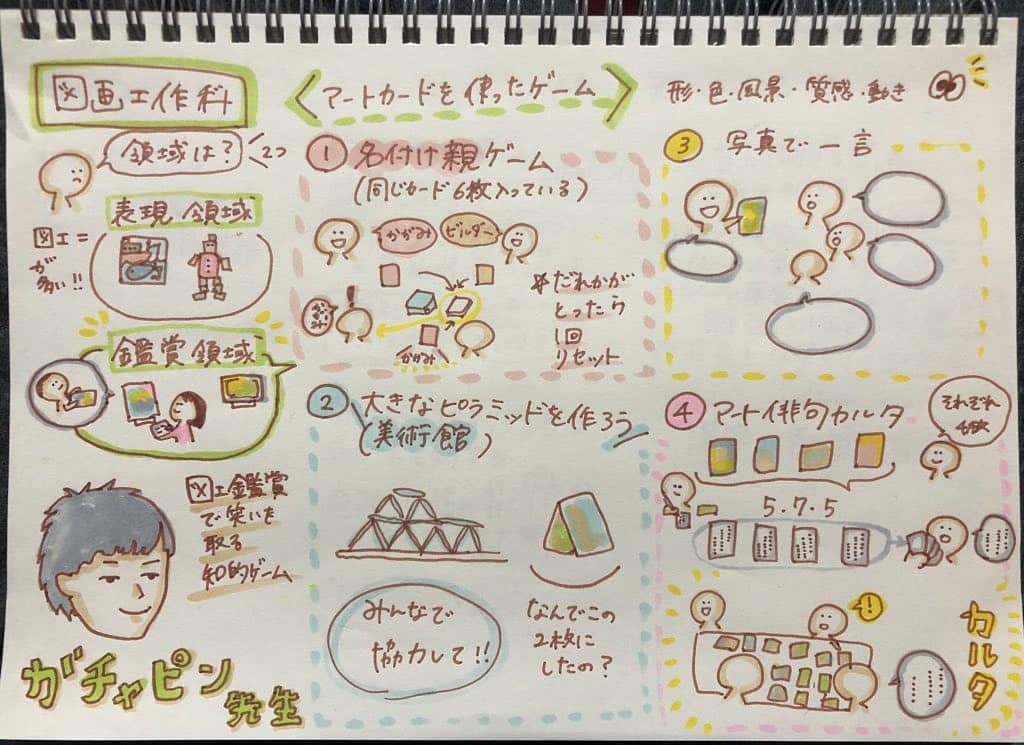 図画工作科
領域は?
2つ
表現領域
図工=
が
多い!!
鑑賞領域
図工鑑賞
で笑いを
取る
知的ゲーム
ガチャピン
先生
アートカードを使ったゲーム
形・色・風景・質感・動き
① 名付け親ゲーム
(同じカード6枚入っている)
かがみ
ビルダー
かがみ
!
かがみ
※だれかが
とったら
1回
リセット
② 大きなピラミッドを作ろう
(美術館)
みんなで
協力して!!
なんでこの
2枚に
したの?
③ 写真で一言
④ アート俳句カルタ
それぞれ
4枚
5.7.5
!
カルタ